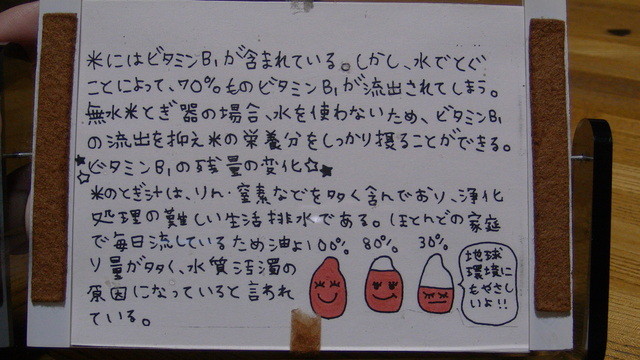 米にはビタミンB₁が含まれている。しかし、水でとぐ
ことによって、70%ものビタミンB₁が流出されてしまう。
無水米とぎ器の場合、水を使わないため、ビタミンB₁
の流出を抑え米の栄養分をしっかり摂ることができる。
★☆ビタミンB₁の残量の変化☆★
米のとぎ汁は、りん・窒素などを多く含んでおり、浄化
処理の難しい生活排水である。ほとんどの家庭
で毎日流しているため油よ
り量が多く、水質汚濁の
原因になっていると言われ
ている。
100% 80% 30%
地球
環境に
もやさし
いよ!!